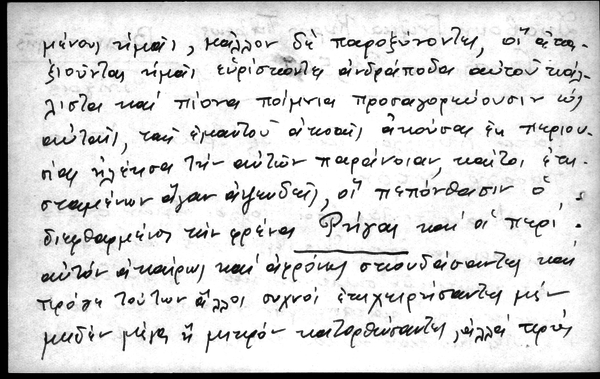 μένους ἡμᾶς, μᾶλλον δὲ παροξύνοντες, οἳ ἀτα-
ξιοῦντας ἡμᾶς εὑρίσκοντες ἀνδράποδα αὐτοῦ κάλ-
λιστα καὶ πίονα ποίμνια προσαγορεύουσιν ὡς
αὐταῖς, ταῖς ἐμαυτοῦ ἀκοαῖς ἀκούσας ἐκ περιου-
σίας ἠλέησα τὴν αὐτῶν παράνοιαν, καίτοι
σταμένων ἄγαν ἀψευδῶς, οἷα πεπόνθασιν ὁ
διεφθαρμένος τὴν φρένα Ρήγας καὶ οἱ περὶ
αὐτὸν ἀκαίρως καὶ ἀφρόνως σπουδάσαντες καὶ
πρό γε τούτων ἄλλοι συχνοὶ ἐπιχειρήσαντες μὲν
μηδὲν μέγα ἢ μικρὸν κατορθώσαντες, ἀλλὰ πρὸς